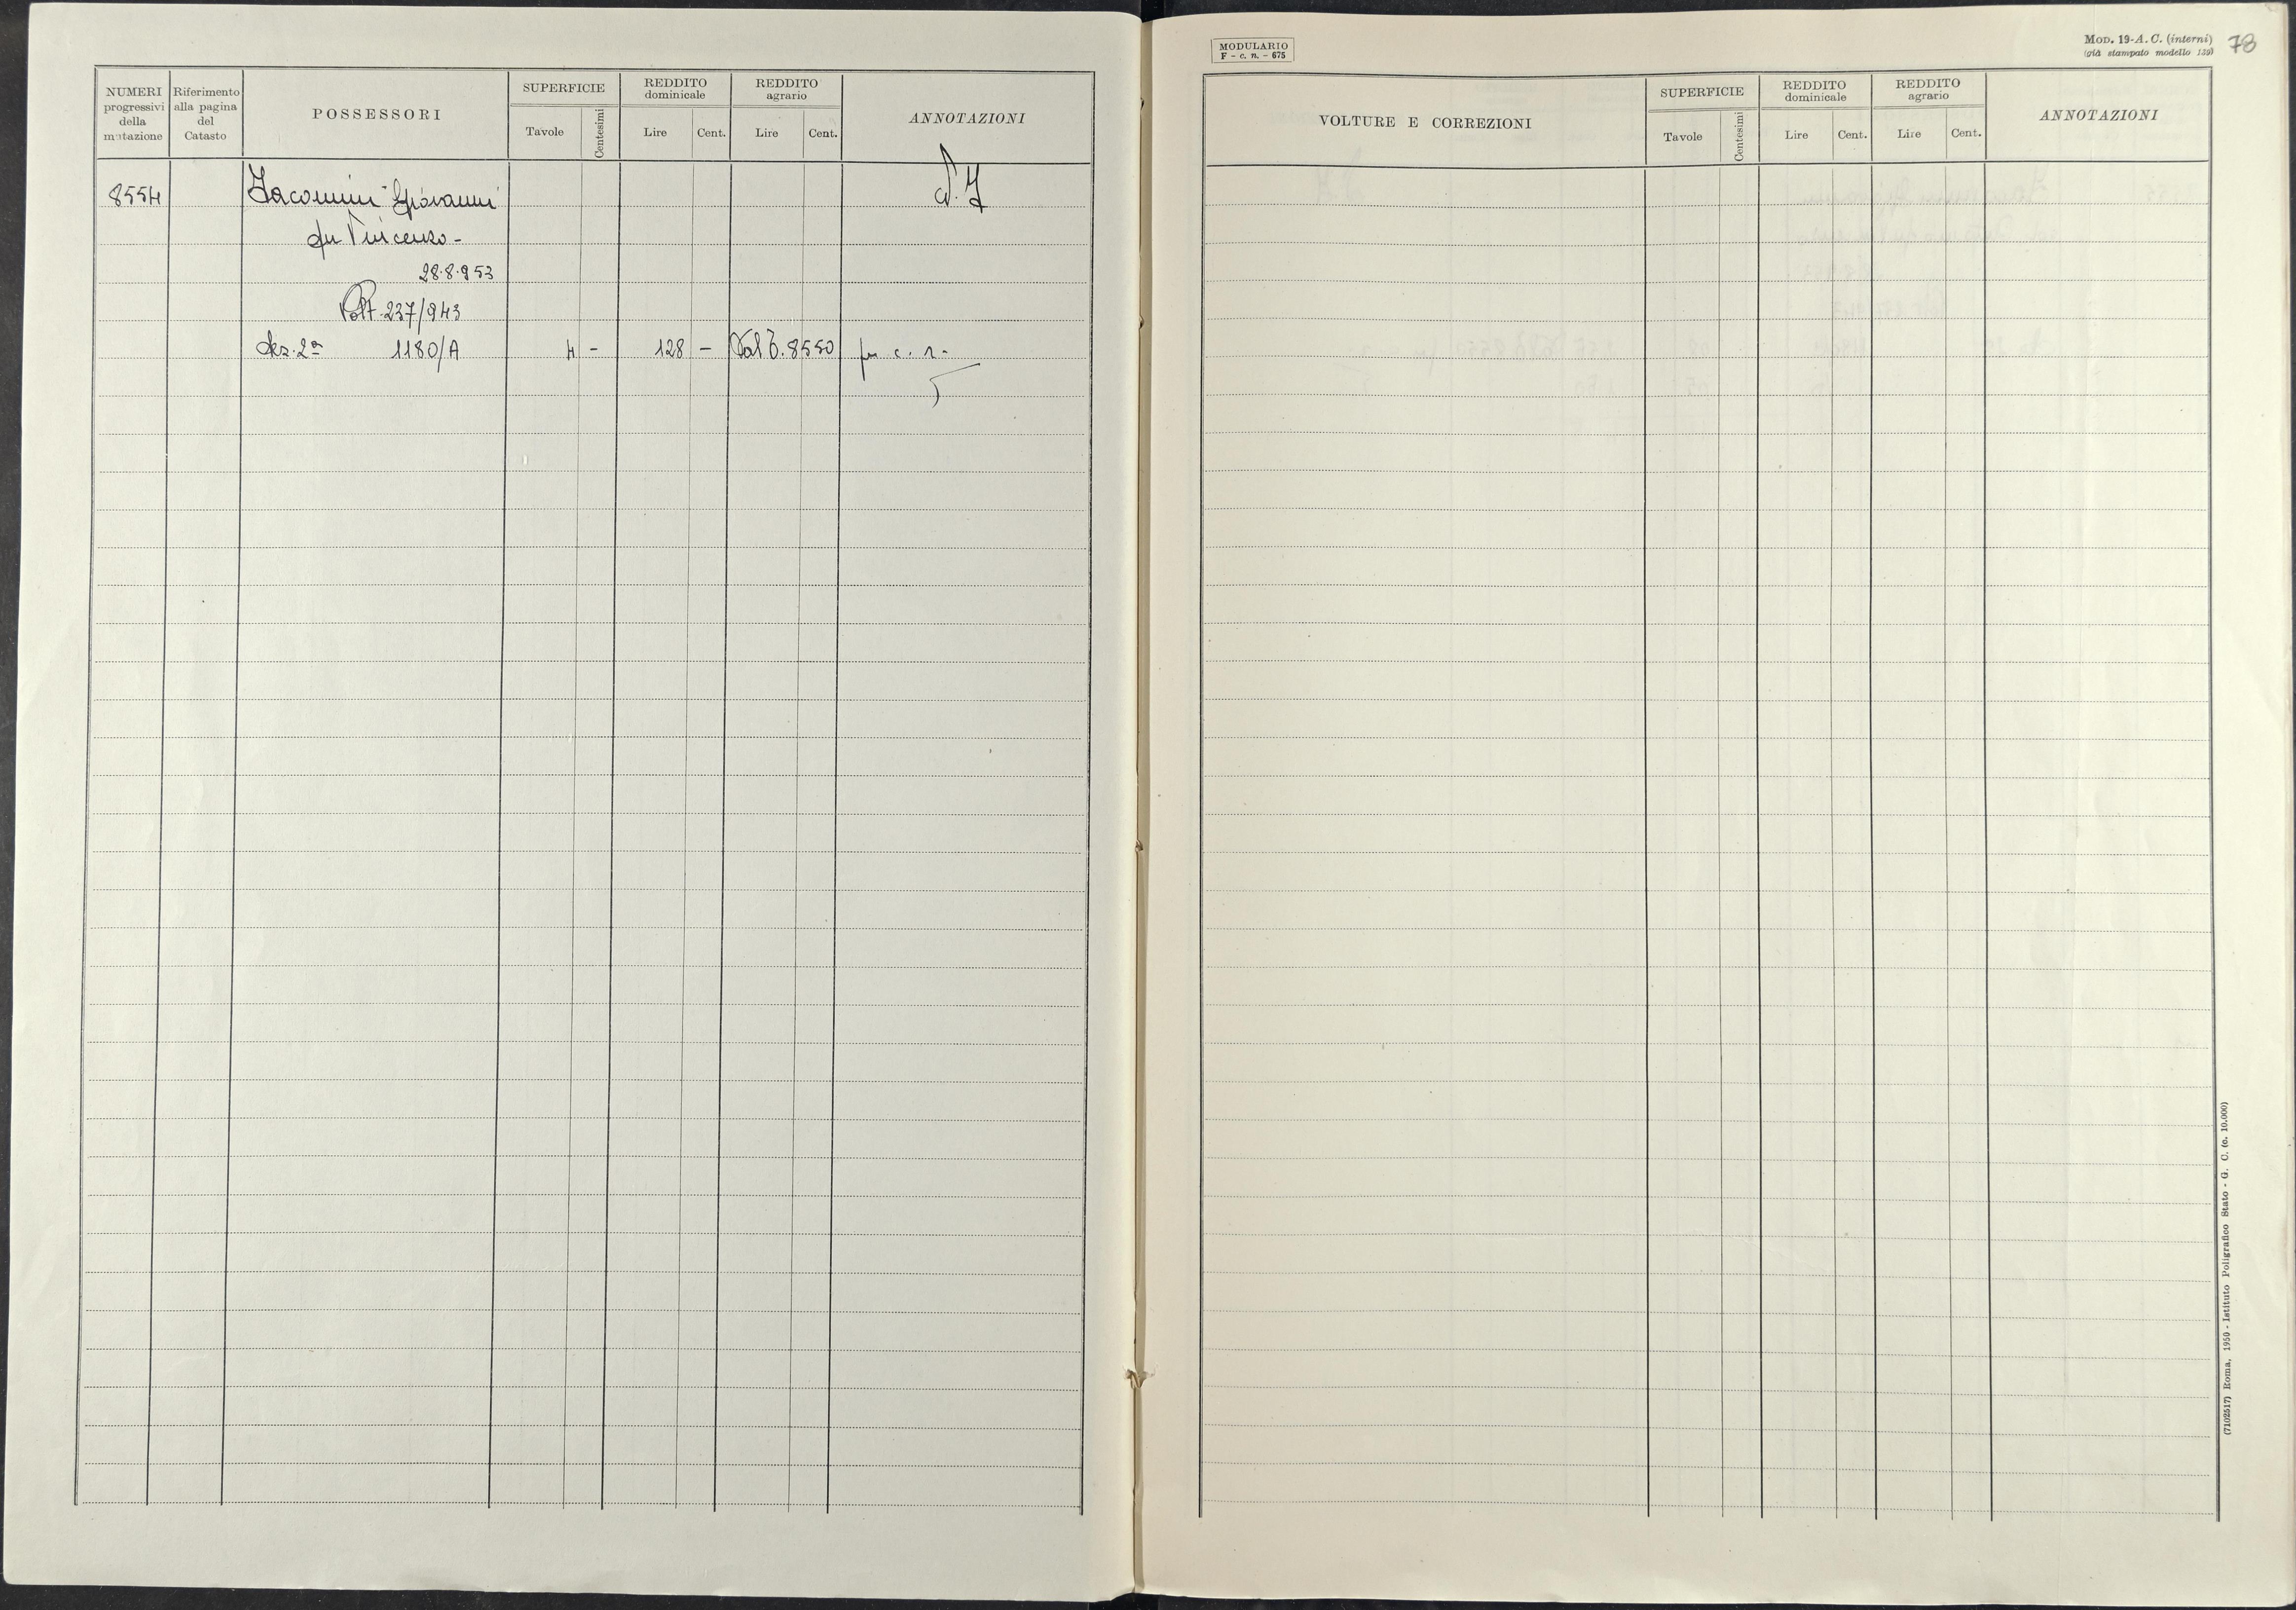 NUMERI
progressivi
della
mutazione
Riferimento
alla pagina
del
Catasto
POSSESSORI
SUPERFICIE
Tavole
Centesimi
REDDITO
dominicale
Lire
Cent.
REDDITO
agrario
Lire
Cent.
ANNOTAZIONI
8554
Iacomini Giovanni
fu Vincenzo -
28.8.953
Volt. 237/943
Sez. 2ª 1180/A 4 - 128 - Dal T. 8550 per c. n.
MODULARIO
F - c. n. - 675
MOD. 19-A. C. (interni)
(già stampato modello 139)
78
VOLTURE E CORREZIONI
SUPERFICIE
Tavole
Centesimi
REDDITO
dominicale
Lire
Cent.
REDDITO
agrario
Lire
Cent.
ANNOTAZIONI
(7102517) Roma, 1950 - Istituto Poligrafico Stato - G. C. (c. 10.000)